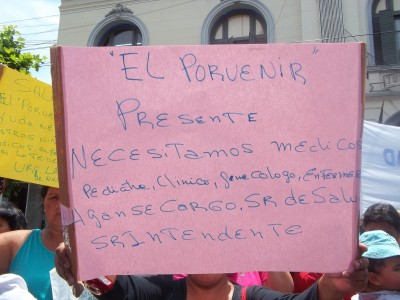 "EL PORVENIR"
PRESENTE
NECESITAMOS MEDICOS
Pediatra, Clinico, Genecologo, ENFERMER
AGANSE CARGO. SR de SALU
SR INTENDENTE
SAL
EL PORVEN